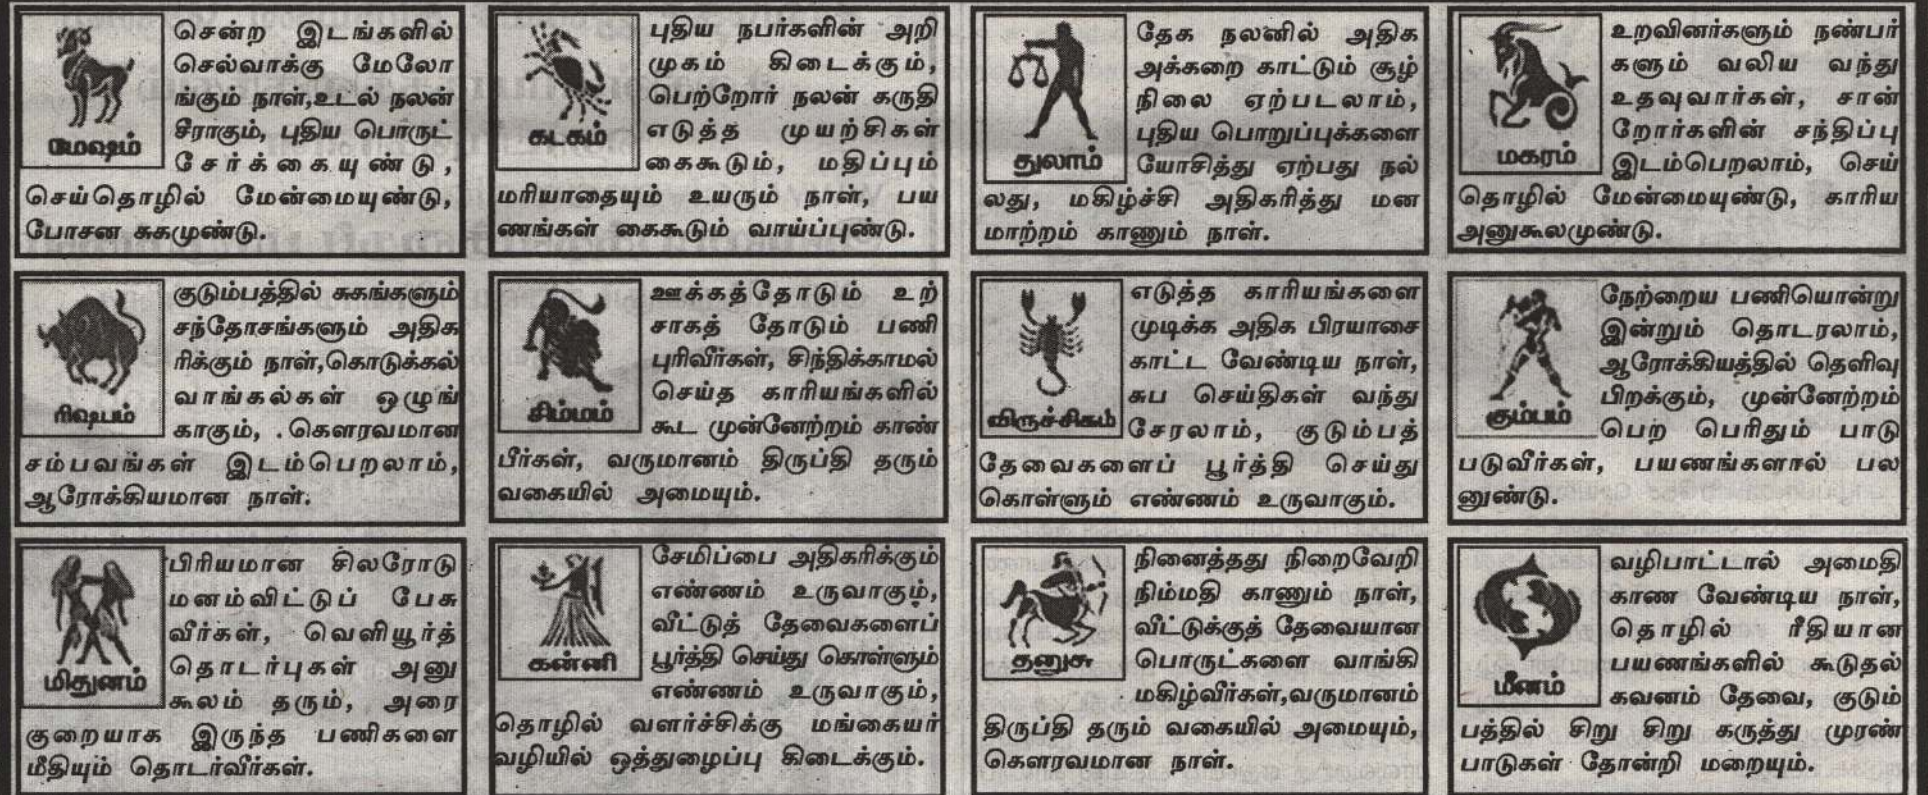 சென்ற இடங்களில்
செல்வாக்கு மேலோ
ங்கும் நாள்,உடல் நலன்
சீராகும், புதிய பொருட்
சேர்க்கையுண்டு,
மேஷம்
செய்தொழில் மேன்மையுண்டு,
போசன சுகமுண்டு.
குடும்பத்தில் சுகங்களும்
சந்தோசங்களும் அதிக
ரிக்கும் நாள்,கொடுக்கல்
வாங்கல்கள் ஒழுங்
காகும், கௌரவமான
ரிஷபம்
சம்பவங்கள் இடம்பெறலாம்,
ஆரோக்கியமான நாள்.
பிரியமான சிலரோடு
மனம்விட்டுப் பேசு
வீர்கள், வெளியூர்த்
தொடர்புகள் அனு
கூலம் தரும், அரை
மிதுனம்
குறையாக இருந்த பணிகளை
மீதியும் தொடர்வீர்கள்.
புதிய நபர்களின் அறி
முகம் கிடைக்கும்,
பெற்றோர் நலன் கருதி
எடுத்த முயற்சிகள்
கைகூடும், மதிப்பும்
கடகம்
மரியாதையும் உயரும் நாள், பய
ணங்கள் கைகூடும் வாய்ப்புண்டு.
ஊக்கத்தோடும் உற்
சாகத் தோடும் பணி
புரிவீர்கள், சிந்திக்காமல்
செய்த காரியங்களில்
கூட முன்னேற்றம் காண்
சிம்மம்
பீர்கள், வருமானம் திருப்தி தரும்
வகையில் அமையும்.
சேமிப்பை அதிகரிக்கும்
எண்ணம் உருவாகும்,
வீட்டுத் தேவைகளைப்
பூர்த்தி செய்து கொள்ளும்
எண்ணம் உருவாகும்,
கன்னி
தொழில் வளர்ச்சிக்கு மங்கையர்
வழியில் ஒத்துழைப்பு கிடைக்கும்.
தேக நலனில் அதிக
அக்கறை காட்டும் சூழ்
நிலை ஏற்படலாம்,
புதிய பொறுப்புக்களை
யோசித்து ஏற்பது நல்
துலாம்
லது, மகிழ்ச்சி அதிகரித்து மன
மாற்றம் காணும் நாள்.
எடுத்த காரியங்களை
முடிக்க அதிக பிரயாசை
காட்ட வேண்டிய நாள்,
சுப செய்திகள் வந்து
சேரலாம், குடும்பத்
விருச்சிகம்
தேவைகளைப் பூர்த்தி செய்து
கொள்ளும் எண்ணம் உருவாகும்.
நினைத்தது நிறைவேறி
நிம்மதி காணும் நாள்,
வீட்டுக்குத் தேவையான
பொருட்களை வாங்கி
மகிழ்வீர்கள்,வருமானம்
தனுசு
திருப்தி தரும் வகையில் அமையும்,
கௌரவமான நாள்.
உறவினர்களும் நண்பர்
களும் வலிய வந்து
உதவுவார்கள், சான்
றோர்களின் சந்திப்பு
இடம்பெறலாம், செய்
மகரம்
தொழில் மேன்மையுண்டு, காரிய
அனுகூலமுண்டு.
நேற்றைய பணியொன்று
இன்றும் தொடரலாம்,
ஆரோக்கியத்தில் தெளிவு
பிறக்கும், முன்னேற்றம்
பெற பெரிதும் பாடு
கும்பம்
படுவீர்கள், பயணங்களால் பல
னுண்டு.
வழிபாட்டால் அமைதி
காண வேண்டிய நாள்,
தொழில் ரீதியான
பயணங்களில் கூடுதல்
கவனம் தேவை, குடும்
மீனம்
பத்தில் சிறு சிறு கருத்து முரண்
பாடுகள் தோன்றி மறையும்.